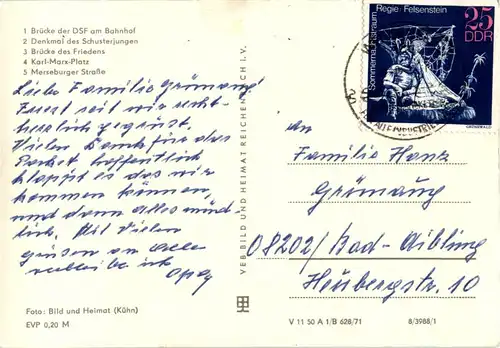 1 Brücke der DSF am Bahnhof
2 Denkmal des Schusterjungen
3 Brücke des Friedens
4 Karl-Marx-Platz
5 Merseburger Straße
Liebe Familie Grünaug!
Zuerst seit mir recht
herzlich gegrüst.
Vielen Dank für das
Packet hoffentlich
klappt es das wir
kommen können,
und dann alles münd-
lich. Mit vielen
grüsen an alle
verbleibe ich
VEB BILD UND HEIMAT REICHENBACH I. V.
Foto: Bild und Heimat (Kühn)
EVP 0,20 M
Sommernachtstraum
Regie: Felsenstein
25
DDR
an
Familie Hanz
Grünaug
08202/Bad-Aibling
Heubergstr. 10
V 11 50 A 1/B 628/71
8/3988/1